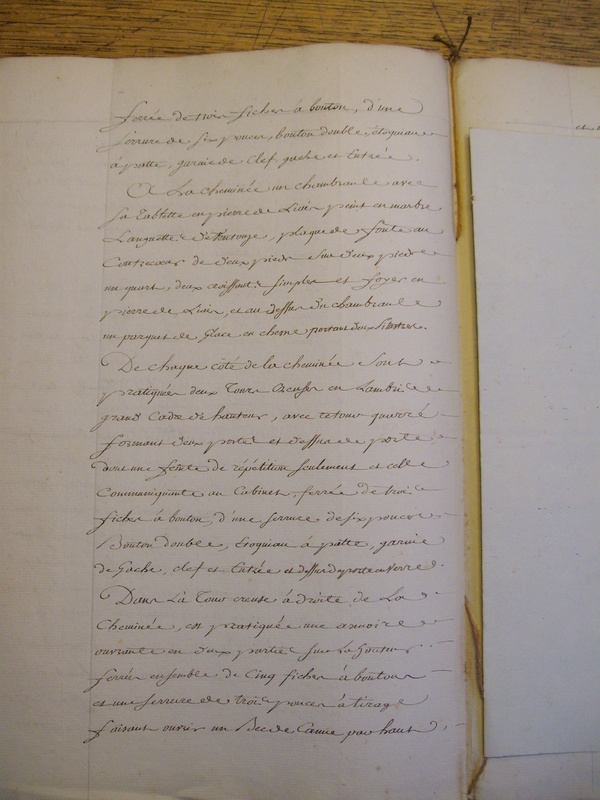 ferrée de trois fiches à bouton, d'une
serrure de six pouces, bouton double, étoquiau
à patte, garnie de Clef gache et Entrée.
A La cheminée un chambranle avec
sa Tablette en pierre de Liais peint en marbre
Languette de Pentouze, plaque de fonte au
Contrecœur de deux pieds sur deux pieds
un quart, deux croissants simples et foyer en
pierre de Liais, et au dessus du chambranle
un parquet de Glace en chesne portant deux
De chaque côté de la cheminée sont
pratiquées deux Tours Creuses en Lambris
grand Cadre de hauteur, avec retour quarré
formant deux portes et dessus de porte
dont une feinte de répétition seulement et celle
Communiquante au Cabinet, ferrée de trois
fiches à bouton, d'une serrure de six pouces
Bouton double, Etoquiau à patte, garnie
de Gache, clef et Entrée et dessus de porte en verre.
Dans La Tour creuse à droite de La
Cheminée, est pratiquée une armoire
ouvrante en deux parties sur La hauteur
ferrées ensemble de Cinq fiches à boutons
et une serrure de trois pouces à tirage
faisant ouvrir un Bec de Canne par haut
et